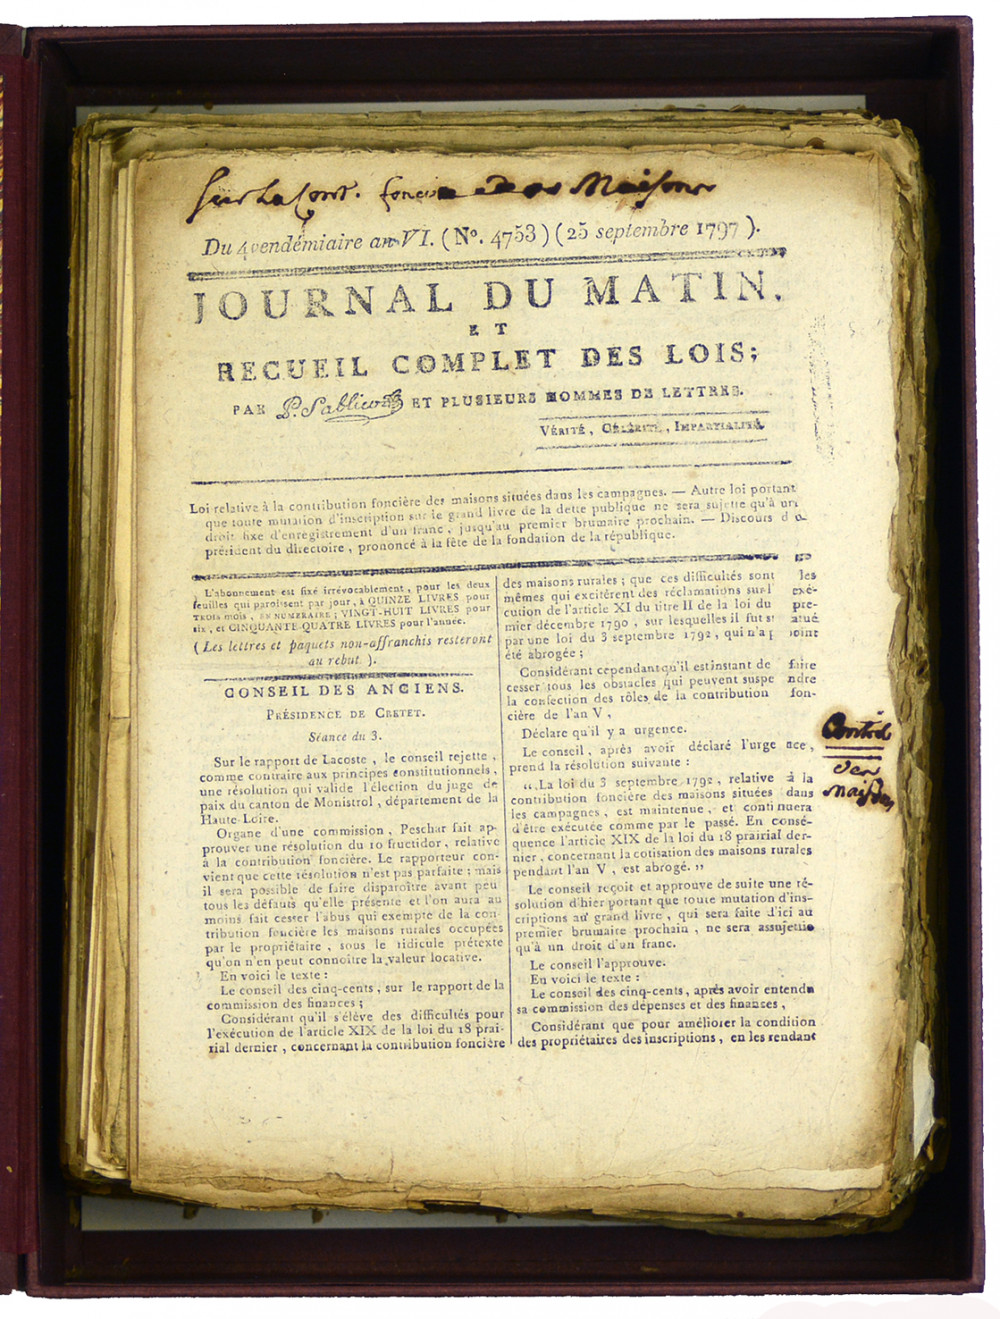 Sur La Cont. foncie des Maisons
Du 4 vendémiaire an VI. (Nº. 4753) (25 septembre 1797).
JOURNAL DU MATIN,
ET
RECUEIL COMPLET DES LOIS;
PAR P. Sablier ET PLUSIEURS HOMMES DE LETTRES.
VÉRITÉ, CÉLÉRITÉ, IMPARTIALITÉ.
Loi relative à la contribution foncière des maisons situées dans les campagnes. — Autre loi portant
que toute mutation d'inscription sur le grand livre de la dette publique ne sera sujette qu'à un
droit fixe d'enregistrement d'un franc, jusqu'au premier brumaire prochain. — Discours du
président du directoire, prononcé à la fête de la fondation de la république.
L'abonnement est fixé irrévocablement, pour les deux
feuilles qui paroissent par jour, à QUINZE LIVRES pour
TROIS MOIS, EN NUMÉRAIRE; VINGT-HUIT LIVRES pour
six, et CINQUANTE-QUATRE LIVRES pour l'année.
(Les lettres et paquets non-affranchis resteront
au rebut.).
CONSEIL DES ANCIENS.
PRÉSIDENCE DE CRETET.
Séance du 3.
Sur le rapport de Lacoste, le conseil rejette,
comme contraire aux principes constitutionnels,
une résolution qui valide l'élection du juge de
paix du canton de Monistrol, département de la
Haute-Loire.
Organe d'une commission, Peschar fait ap-
prouver une résolution du 10 fructidor, relative
à la contribution foncière. Le rapporteur con-
vient que cette résolution n'est pas parfaite: mais
il sera possible de faire disparoître avant peu
tous les défauts qu'elle présente et l'on aura au
moins fait cesser l'abus qui exempte de la con-
tribution foncière les maisons rurales occupées
par le propriétaire, sous le ridicule prétexte
qu'on n'en peut connoître la valeur locative.
En voici le texte:
Le conseil des cinq-cents, sur le rapport de la
commission des finances;
Considérant qu'il s'élève des difficultés pour
l'exécution de l'article XIX de la loi du 18 prai-
rial dernier, concernant la contribution foncière
des maisons rurales; que ces difficultés sont les
mêmes qui excitèrent des réclamations sur l'exé-
cution de l'article XI du titre II de la loi du pre-
mier décembre 1790, sur lesquelles il fut statué
par une loi du 3 septembre 1792, qui n'a point
été abrogée;
Considérant cependant qu'il est instant de faire
cesser tous les obstacles qui peuvent suspendre
la confection des rôles de la contribution fon-
cière de l'an V,
Déclare qu'il y a urgence.
Le conseil, après avoir déclaré l'urgence,
prend la résolution suivante:
“La loi du 3 septembre 1792, relative à la
contribution foncière des maisons situées dans
les campagnes, est maintenue, et continuera
d'être exécutée comme par le passé. En consé-
quence l'article XIX de la loi du 18 prairial der-
nier, concernant la cotisation des maisons rurales
pendant l'an V, est abrogé.”
Le conseil reçoit et approuve de suite une ré-
solution d'hier portant que toute mutation d'ins-
criptions au grand livre, qui sera faite d'ici au
premier brumaire prochain, ne sera assujettie
qu'à un droit d'un franc.
Le conseil l'approuve.
En voici le texte:
Le conseil des cinq-cents, après avoir entendu
sa commission des dépenses et des finances,
Considérant que pour améliorer la condition
des propriétaires des inscriptions, en les rendant
des
Maisons